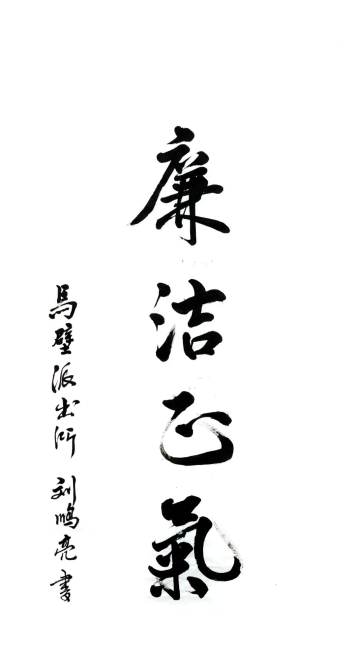 廉洁正氣
馬壁派出所 刘鵬亮書